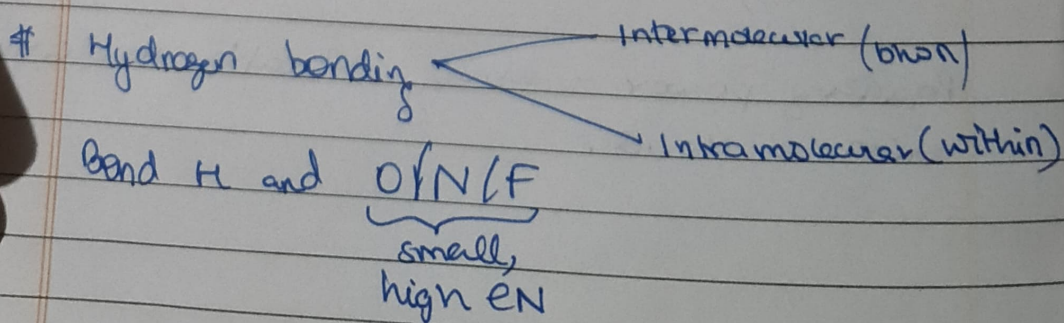 # Hydrogen bonding
Intermolecular (b/won)
Intramolecular (within)
Bond H and O/N/F
small,
high EN